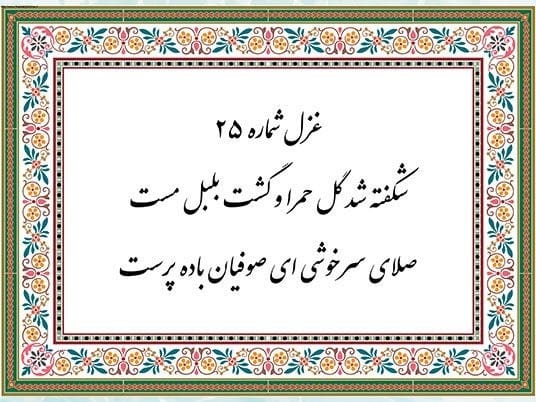 غزل شماره ۲۵
شکفته شد گل حمرا و گشت بلبل مست
صلای سرخوشی ای صوفیان باده پرست